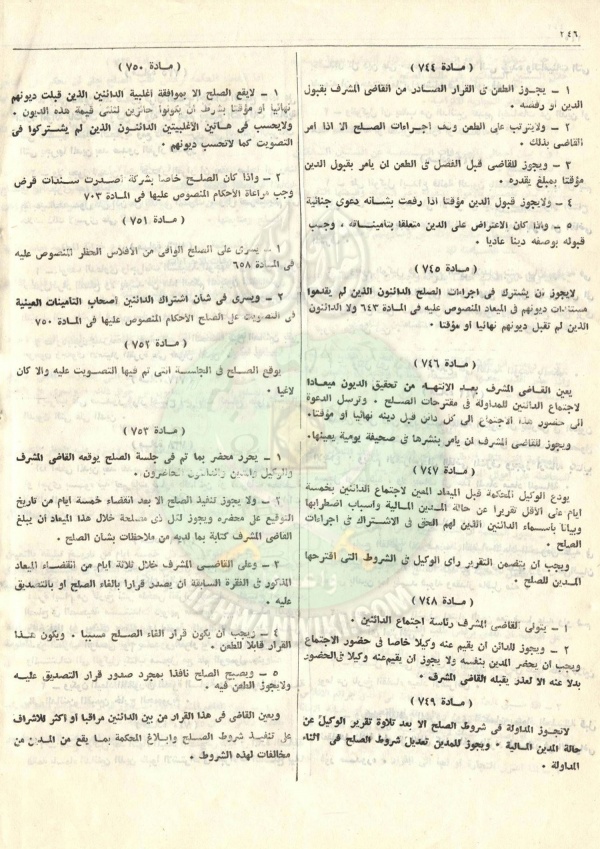 ٢٤٦
( مادة ٧٤٤ )
١ – يجوز الطعن فى القرار الصادر من القاضى المشرف بقبول
الدين أو رفضه .
٢ – ولايترتب على الطعن وقف اجراءات الصلح الا اذا امر
القاضى بذلك .
٣ – ويجوز للقاضى قبل الفصل فى الطعن ان يامر بقبول الدين
مؤقتا بمبلغ يقدره .
٤ – ولايجوز قبول الدين مؤقتا اذا رفعت بشانه دعوى جنائية
٥ – واذا كان الاعتراض على الدين متعلقا بتأميناته ، وجب
قبوله بوصفه دينا عاديا .
( مادة ٧٤٥ )
لايجوز أن يشترك فى اجراءات الصلح الدائنون الذين لم يقدموا
مستندات ديونهم فى الميعاد المنصوص عليه فى المادة ٦٤٣ ولا الدائنون
الذين لم تقبل ديونهم نهائيا أو مؤقتا .
( مادة ٧٤٦ )
يعين القاضى المشرف بعد الانتهاء من تحقيق الديون ميعادا
لاجتماع الدائنين للمداولة فى مقترحات الصلح . وترسل الدعوة
الى حضور هذا الاجتماع الى كل دائن قبل دينه نهائيا أو مؤقتا .
ويجوز للقاضى المشرف ان يأمر بنشرها فى صحيفة يومية يعينها .
( مادة ٧٤٧ )
يودع الوكيل المحكمة قبل الميعاد المعين لاجتماع الدائنين بخمسة
ايام على الأقل تقريرا عن حالة المدين المالية وأسباب اضطرابها
وبيانا بأسماء الدائنين الذين لهم الحق فى الاشتراك فى اجراءات
الصلح .
ويجب ان يتضمن التقرير راى الوكيل فى الشروط التى اقترحها
المدين للصلح .
( مادة ٧٤٨ )
١ – يتولى القاضى المشرف رئاسة اجتماع الدائنين .
٢ – ويجوز للدائن أن يقيم عنه وكيلا خاصا فى حضور الاجتماع
ويجب ان يحضر المدين بنفسه ولا يجوز أن يقيم عنه وكيلا فى الحضور
بدلا عنه الا لعذر يقبله القاضى المشرف .
( مادة ٧٤٩ )
لاتجوز المداولة فى شروط الصلح الا بعد تلاوة تقرير الوكيل عن
حالة المدين المالية . ويجوز للمدين تعديل شروط الصلح فى اثناء
المداولة .
( مادة ٧٥٠ )
١ – لايقع الصلح الا بموافقة أغلبية الدائنين الذين قبلت ديونهم
نهائيا أو مؤقتا بشرط أن يكونوا حائزين لثلثى قيمة هذه الديون .
ولايحسب فى هاتين الأغلبيتين الدائنون الذين لم يشتركوا فى
التصويت كما لاتحسب ديونهم .
٢ – واذا كان الصلح خاصا بشركة أصدرت سندات قرض
وجب مراعاة الأحكام المنصوص عليها فى المادة ٧٠٣
( مادة ٧٥١ )
١ – يسرى على الصلح الواقى من الأفلاس الحظر المنصوص عليه
فى المادة ٦٥٨
٢ – ويسرى فى شان اشتراك الدائنين أصحاب التامينات العينية
فى التصويت على الصلح الأحكام المنصوص عليها فى المادة ٧٥٠
( مادة ٧٥٢ )
يوقع الصلح فى الجلسة التى تم فيها التصويت عليه والا كان
لاغيا .
( مادة ٧٥٣ )
١ – يحرد محضر بما تم فى جلسة الصلح يوقعه القاضى المشرف
والوكيل والمدين والدائنون الحاضرون .
٢ – ولا يجوز تنفيذ الصلح الا بعد انقضاء خمسة ايام من تاريخ
التوقيع على محضره ويجوز لكل ذى مصلحة خلال هذا الميعاد أن يبلغ
القاضى المشرف كتابة بما لديه من ملاحظات بشأن الصلح .
٣ – وعلى القاضى المشرف خلال ثلاثة ايام من انقضاء الميعاد
المذكور فى الفقرة السابقة ان يصدر قرارا بالغاء الصلح أو بالتصديق
عليه .
٤ – ويجب أن يكون قرار الغاء الصلح مسببا . ويكون هذا
القرار قابلا للطعن .
٥ – ويصبح الصلح نافذا بمجرد صدور قرار التصديق عليه
ولايجوز الطعن فيه .
ويعين القاضى فى هذا القرار من بين الدائنين مراقبا أو اكثر للاشراف
على تنفيذ شروط الصلح وابلاغ المحكمة بما يقع من المدين من
مخالفات لهذه الشروط .
IKHWANWIKI.COM